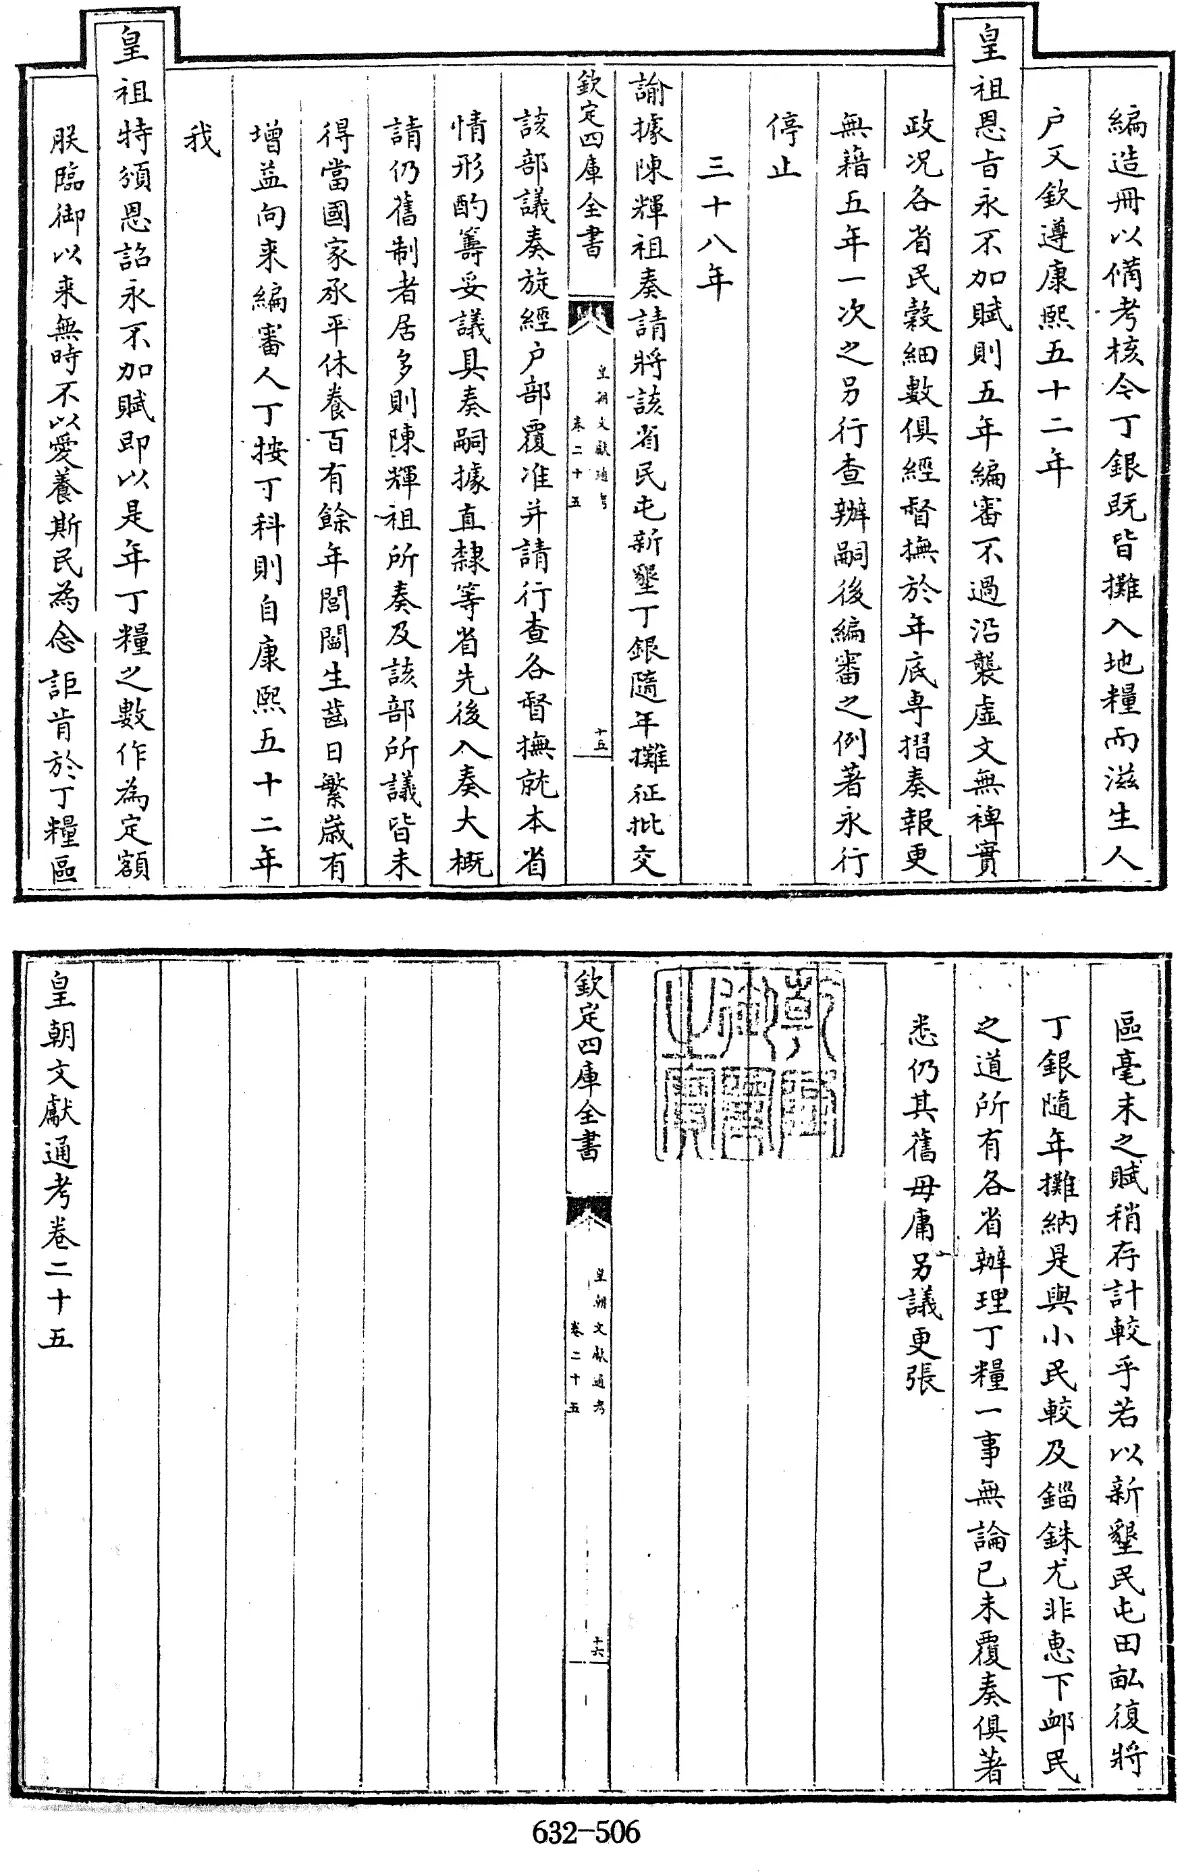 編造冊以備考核今丁銀既皆攤入地糧而滋生人
户又欽遵康熙五十二年
皇祖恩旨永不加賦則五年編審不過沿襲虛文無裨實
政況各省民穀細數俱經督撫於年底專摺奏報更
無藉五年一次之另行查辦嗣後編審之例著永行
停止
三十八年
諭據陳輝祖奏請將該省民屯新墾丁銀隨年攤征批交
欽定四庫全書
皇朝文獻通考
卷二十五
十五
該部議奏旋經户部覆准并請行查各督撫就本省
情形酌籌妥議具奏嗣據直隸等省先後入奏大概
請仍舊制者居多則陳輝祖所奏及該部所議皆未
得當國家承平休養百有餘年閭閻生齒日繁歲有
增益向来編審人丁按丁科則自康熙五十二年
我
皇祖特頒恩詔永不加賦即以是年丁糧之數作為定額
朕臨御以来無時不以愛養斯民為念詎肯於丁糧區
區毫末之賦稍存計較乎若以新墾民屯田畝復將
丁銀隨年攤納是與小民較及錙銖尤非惠下卹民
之道所有各省辦理丁糧一事無論已未覆奏俱著
悉仍其舊毋庸另議更張
乾隆御覽之寶
欽定四庫全書
皇朝文獻通考
卷二十五
十六
皇朝文獻通考卷二十五
632-506